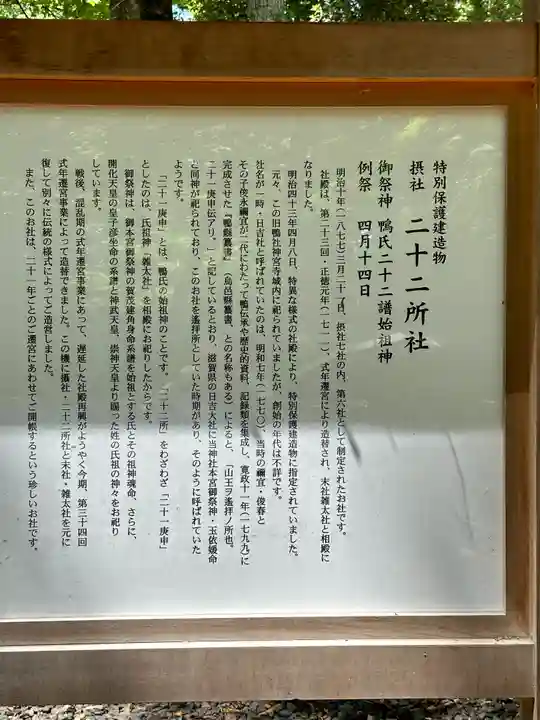 特別保護建造物
摂社 二十二所社
御祭神 鴨氏二十二譜始祖神
例祭 四月十四日
明治十年(一八七七)三月二十一日、摂社七社の内、第六社として制定されたお社です。
社殿は、第二十三回・正徳元年(一七一一)、式年遷宮により造替され、末社雑太社と相殿に
なりました。
明治四十三年四月八日、特異な様式の社殿により、特別保護建造物に指定されていました。
元々、この旧鴨社神宮寺域内に祀られていましたが、創始の年代は不詳です。
社名が一時・日吉社と呼ばれていたのは、明和七年(一七七〇)、当時の禰宜・俊春と
その子俊永禰宜が二代にわたって鴨伝承や歴史的資料、記録類を集成し、寛政十一年(一七九九)に
完成させた『鴨縣纂書』(烏邑縣纂書、との名称もある)によると、「山王ヲ遙拝ノ所也。
二十一庚申伝アリ。」と記しているとおり、滋賀県の日吉大社に当神社本宮御祭神・玉依媛命
と同神が祀られており、このお社を遙拝所としていた時期があり、そのように呼ばれていた
ようです。
「二十一庚申」とは、鴨氏の始祖神のことです。「二十二所」をわざわざ「二十一庚申」
としたのは、氏祖神「雑太社」を相殿にお祀りしたからです。
御祭神は、御本宮御祭神の賀茂建角身命系譜を始祖とする氏とその祖神魂命、さらに、
開化天皇の皇子彦坐命の系譜と神武天皇、崇神天皇より賜った姓の氏祖の神々をお祀り
しています。
戦後、混乱期の式年遷宮事業にあって、遅延した社殿再興がようやく今期、第三十四回
式年遷宮事業によって造替できました。この機に摂社・二十二所社と末社・雑太社を元に
復して別々に伝統の様式によってご造営しました。
また、このお社は、二十一年ごとのご遷宮にあわせてご開帳するという珍しいお社です。